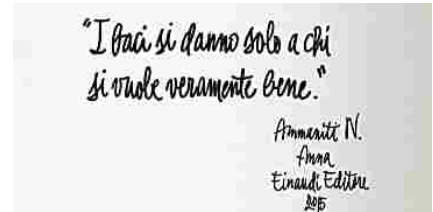 "I baci si danno solo a chi
si vuole veramente bene."
Ammaniti N.
Anna
Einaudi Editore
2015